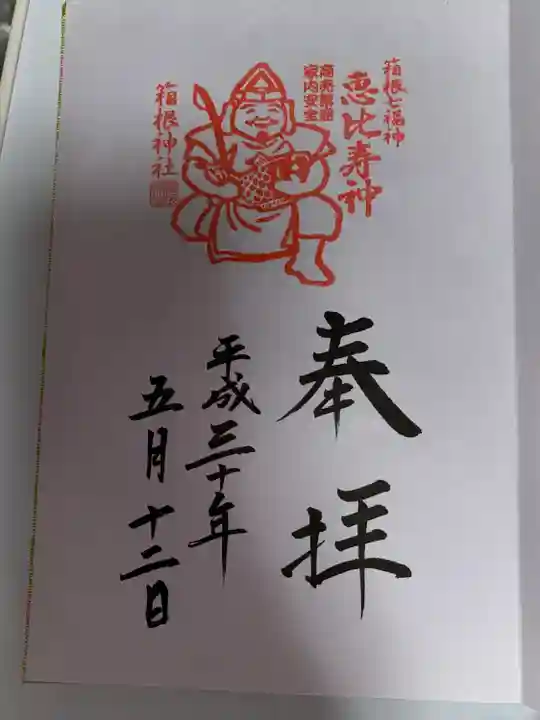 箱根七福神
恵比寿神
商売繁昌
家内安全
箱根神社
奉拝
平成三十年
五月十二日